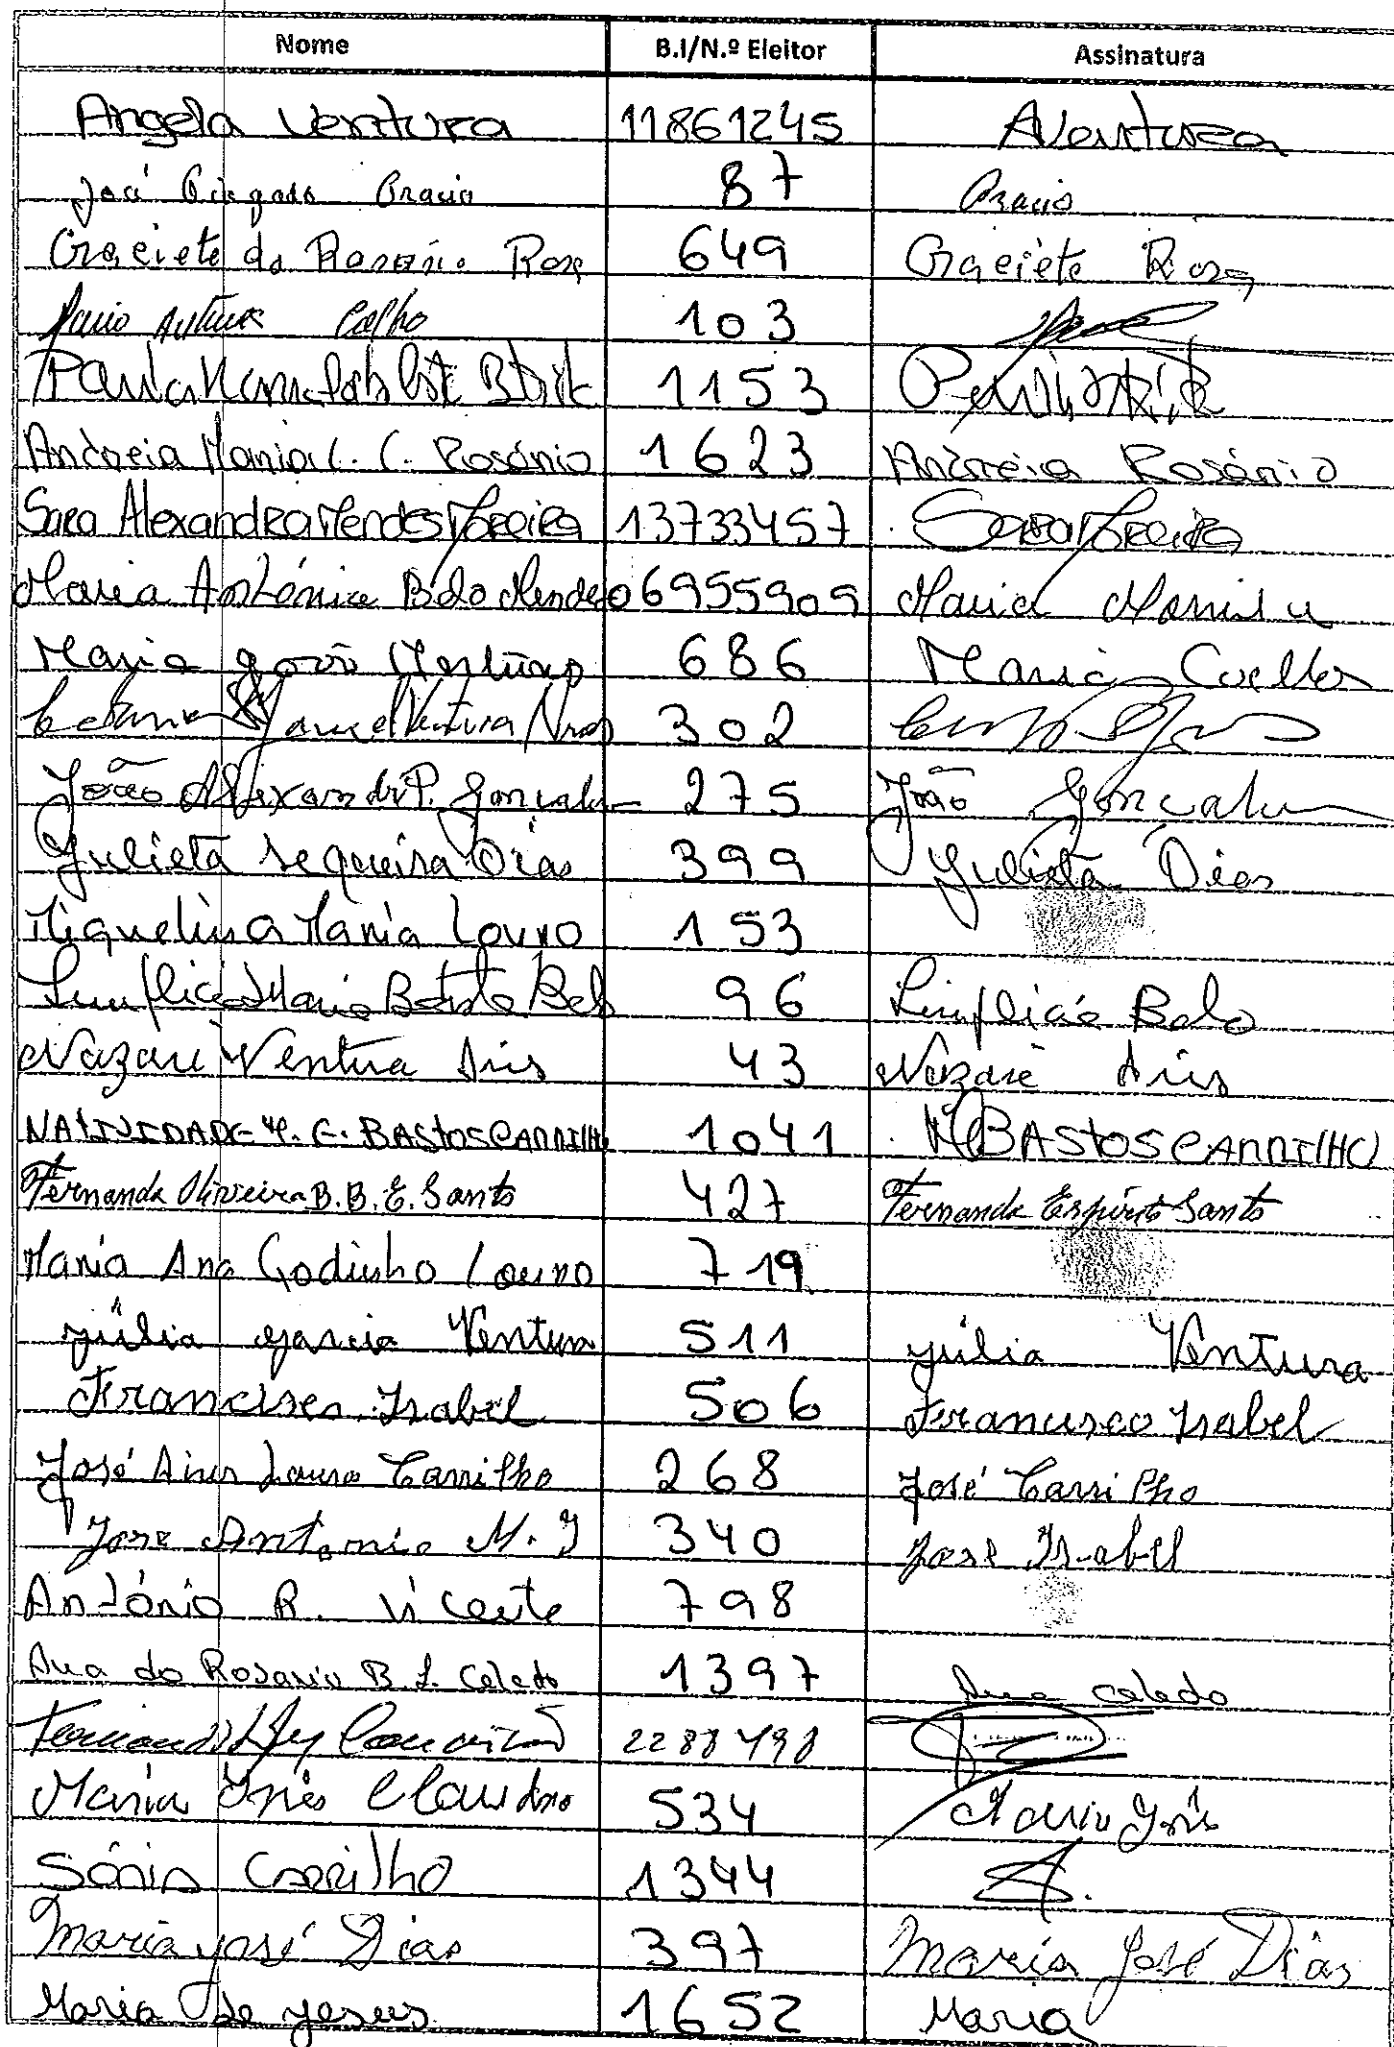 Nome B.I/N.º Eleitor Assinatura
Angela Ventura 11861245 AVentura
José 87
Graciete do Rosário Rosa 649 Graciete Rosa
Artur Coelho 103
Paula 1153
Andreia Maria C. C. Rosário 1623 Andreia Rosário
Sara Alexandra Mendes Moreira 13733457 Sara Moreira
Maria António Belo Mendes 06955909 Maria
Maria 686 Maria Coelho
Manuel Ventura 302
João Alexandre P. Gonçalves 275 João Gonçalves
Julieta Sequeira Dias 399 Julieta Dias
Miquelina Maria Louro 153
Simplicia Maria Batista Belo 96 Simplicia Belo
Nazaré Ventura Aires 43 Nazaré Aires
NATIVIDADE BASTOS CARRILHO 1041 BASTOS CARRILHO
Fernanda Oliveira B. B. E. Santo 427 Fernanda Espírito Santo
Maria Ana Godinho Louro 719
Júlia Garcia Ventura 511 Júlia Ventura
Francisco Isabel 506 Francisco Isabel
José Aires Louro Carrilho 268 José Carrilho
Jose Antonio M. I 340 José Isabel
António R. Vicente 798
Ana do Rosario B. L. Calado 1397 Ana Calado
Conceição
Maria Inês Claudino 534 Maria Inês
Sónia Carrilho 1344
Maria José Dias 397 Maria José Dias
Maria de Jesus 1652 Maria